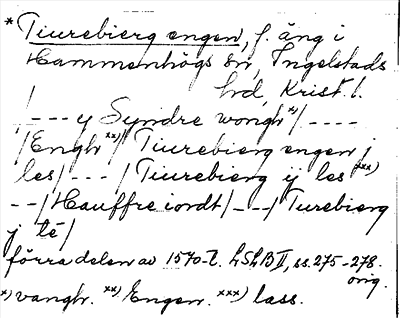 * Tiurebierg engen, f. äng i
Hammenhögs sn, Ingelstads
hd, Krist. l.
/--- y Syndre wongh x)/----
/Engh xx)/ Tiurebierg engen j
les/---/Tiurebierg ij les xxx)
--/Hauffre iordt/---/Turebierg
j lé/
förra delen av 1570-t. LSLB II, ss. 275-278.
orig.
x) vangh. xx) Engen. xxx) lass.